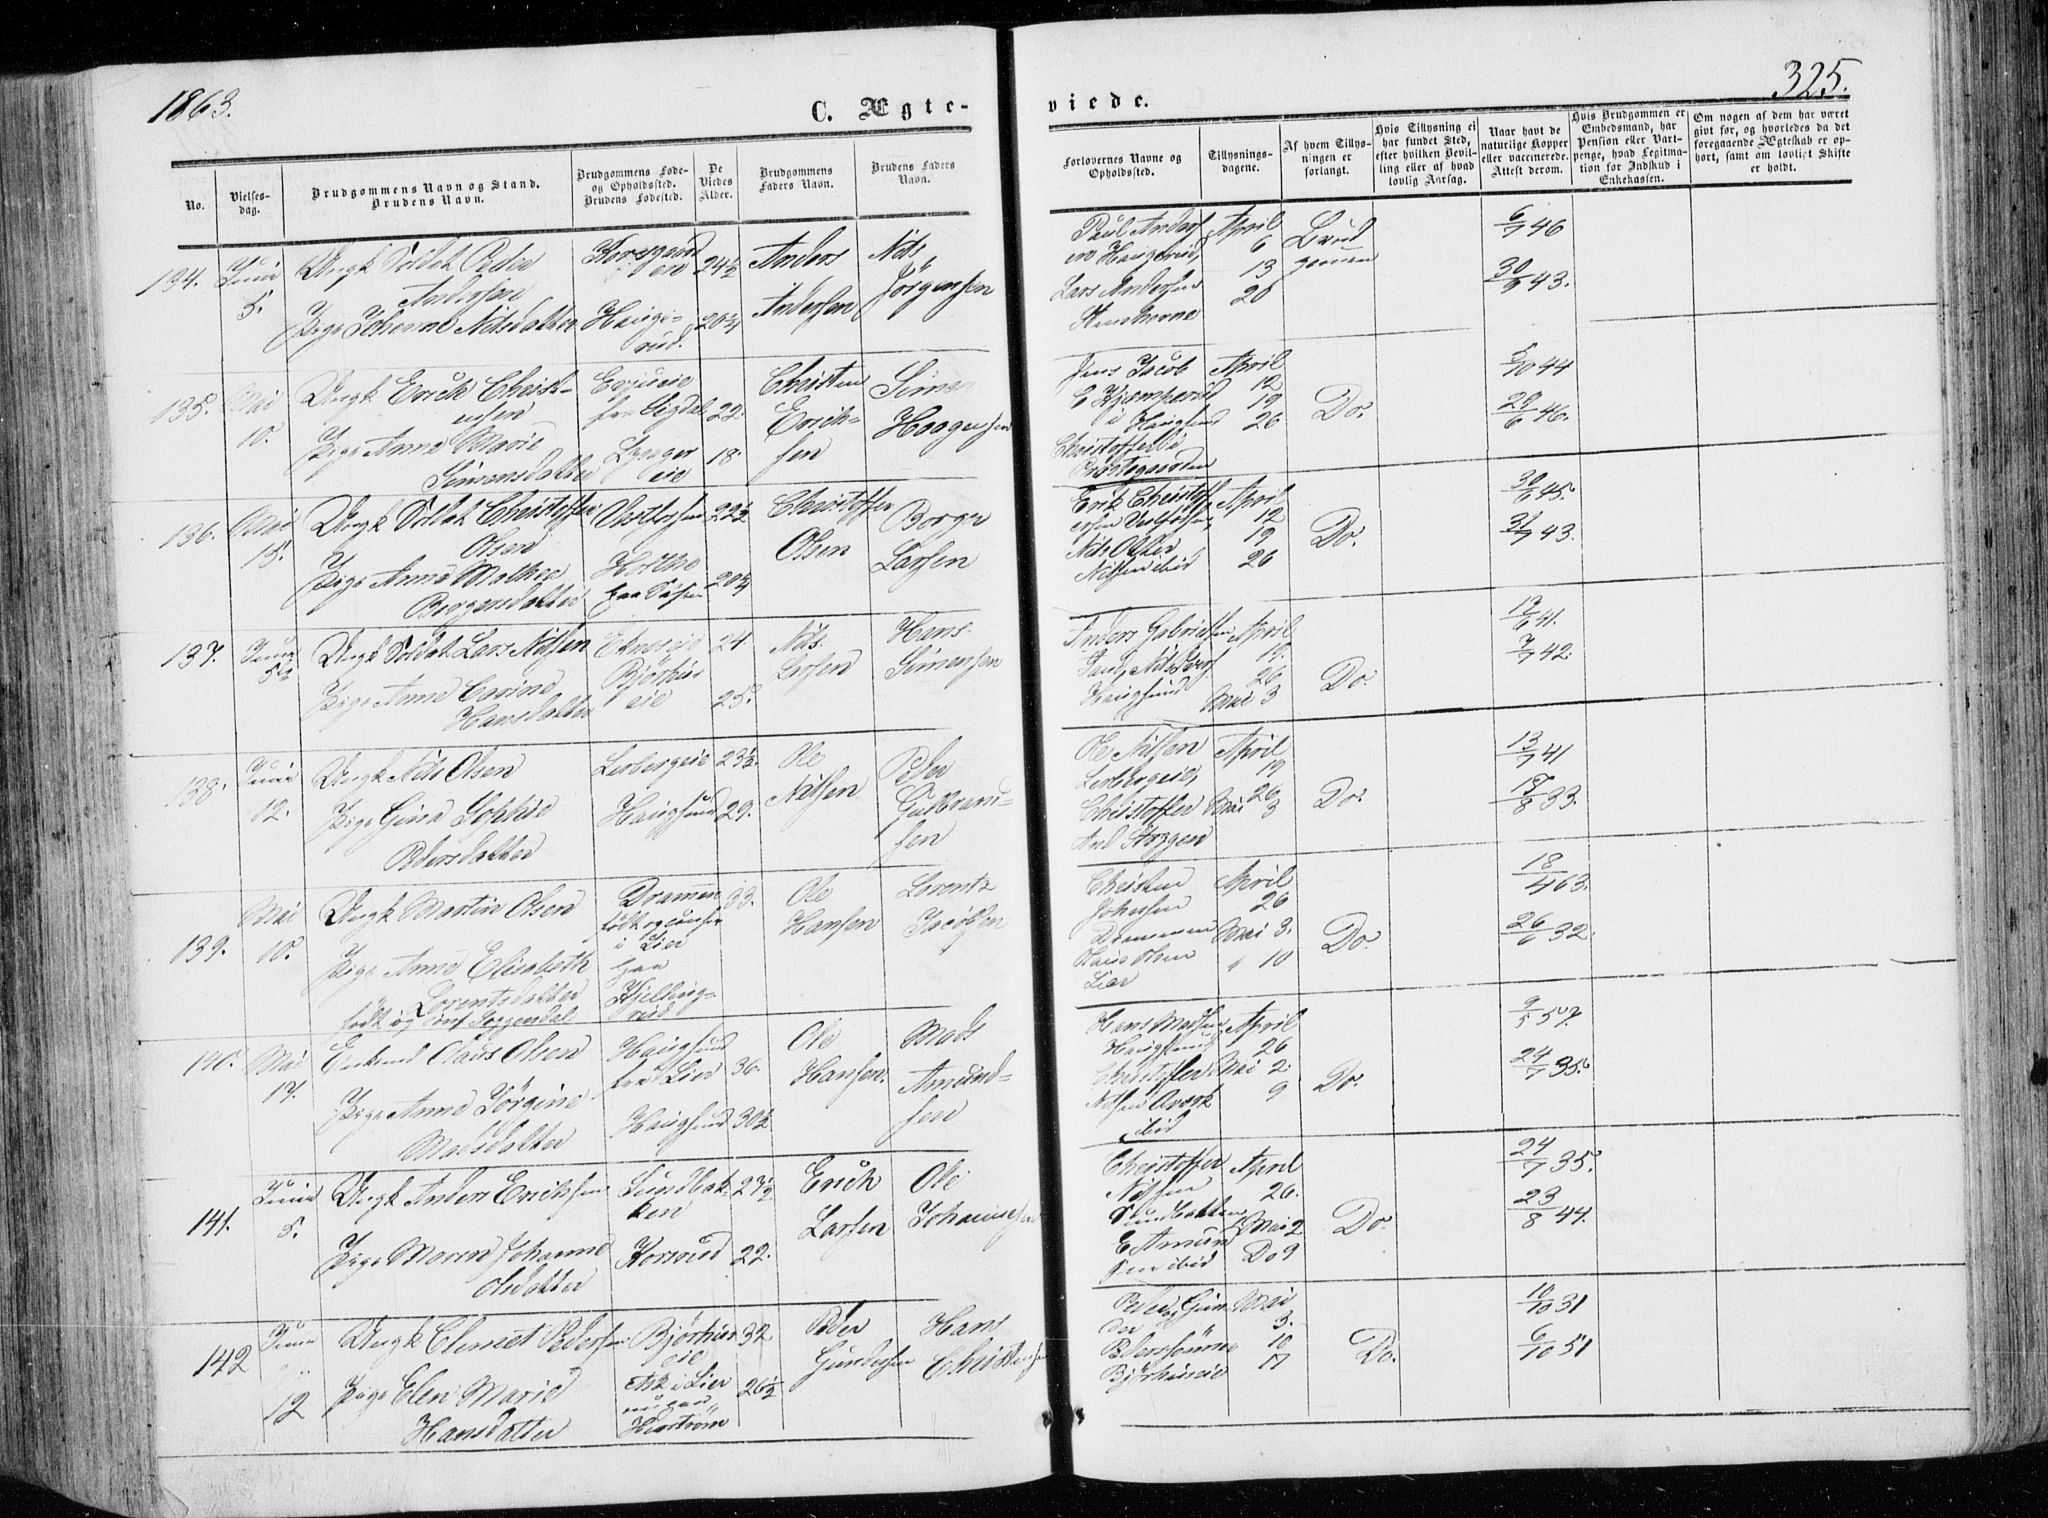 1863.
C. Ægte-
viede.
325.
No.
Vielses-
dag.
Brudgommens Navn og Stand.
Brudens Navn.
Brudgommens Føde-
og Opholdssted.
Brudens Fødested.
De
Viedes
Alder.
Brudgommens
Faders Navn.
Brudens Faders
Navn.
Forlovernes Navne og
Opholdssted.
Tillysnings-
dagene.
Af hvem Tillys-
ningen er
forlangt.
Hvis Tillysning ei
har fundet Sted,
efter hvilken Bevil-
ling eller af hvad
lovlig Aarsag.
Naar havt de
naturlige Kopper
eller vaccinerede.
Attest derom.
Hvis Brudgommen er
Embedsmand, har
Pension eller Vart-
penge, hvad Legitima-
tion for Indskud i
Enkekassen.
Om nogen af dem har været
givt før, og hvorledes da det
foregaaende Ægteskab er op-
hørt, samt om lovligt Skifte
er holdt.
134.
Juni
5.
Ungk Soldat Peder
Andersen
Pige Johanne Nilsdatter
Haugs-
rud.
24½
20¼
Anders
Andersen
Nils
Jörgensen
Paul Anders
Lars Andersen
April
6
13
26
Brud
gommen
6/7 46
30/9 43.
135.
Mai
10.
Ungk Erich Christ-
ensen
Pige Anne Marie
Simensdatter
fra Sigdal
eie
22.
18.
Christen
Erich-
sen
Simen
Haagensen
Jens Jacob
i Haugsund
April
12
19
26
Do.
5/10 44
29/6 46.
136.
Mai
15.
Ungk Soldat Christoffer
Olsen
Pige Anne Mathea
Borgersdatter
22½
20¼
Christoffer
Olsen
Borger
Larsen
Erik Christoff
Nilsen ibid
April
12
19
26
Do.
30/6 45.
31/7 43.
137.
Juni
5te
Ungk Soldat Lars Nilsen
Pige Anne Carine
Hansdatter
Björkus
eie
24.
25.
Nils
Larsen
Hans
Simensen
Anders Gabrielsen
Haugsund
April
19.
26
Mai 3
Do.
7/7 42.
138.
Juni
12.
Ungk Nils Olsen
Pige Gina Sophie
Pedersdatter
Lerbergeie
Haugsund
23½.
29.
Ole
Nilsen
Peder
Gulbrand-
sen
Ole Nilsen
Lerbergeie,
Christoffer
April
19
26
Mai 3
Do.
13/7 41
18/8 33.
139.
Mai
10.
Ungk Martin Olsen
Pige Anne Elisabeth
Lorentsdatter
födt og conf Soggendal
Dramen
födt og confir
i Lier
fra
Kjelling-
rud
33.
Ole
Hansen
Lorentz
Jacobsen
Christen
Johnsen
Drammen
Hans Olsen
Lier
April
26
Mai 3.
" 10
Do.
18/4 63.
26/6 32.
140.
Mai
17.
Enkem Claus Olsen
Pige Anne Jörgine
Madsdatter
Haugsund
fra Lier
Haugsund
36.
30½
Ole
Hansen.
Mads
Amund-
sen
Hans Madsen
Haugsund
Christoffer
Nilsen
ibid
April
26
Mai 2.
9
Do.
9/5 57.
24/7 35.
141.
Juni
5.
Ungk Anders Erichsen
Pige Maren Johanne
Olsdatter
Sundbak-
ken
Korsrud
23½
22.
Erich
Larsen
Ole
Johannesen
Christoffer
Nilsen
Sundbakken
E Amund
sen ibid
April
26.
Mai 2
Do 9
Do.
24/7 35.
23/8 44.
142
Juni
12
Ungk Clemet Pedersen
Pige Elen Marie
Hansdatter
Björkus
eie
Ask i Lier
32
26½
Peder
Gundersen
Hans
Christensen
Peder og Gun
der
Pederssönner
Björkuseie
Mai
3.
10
17
Do.
10/10 31
6/10 51